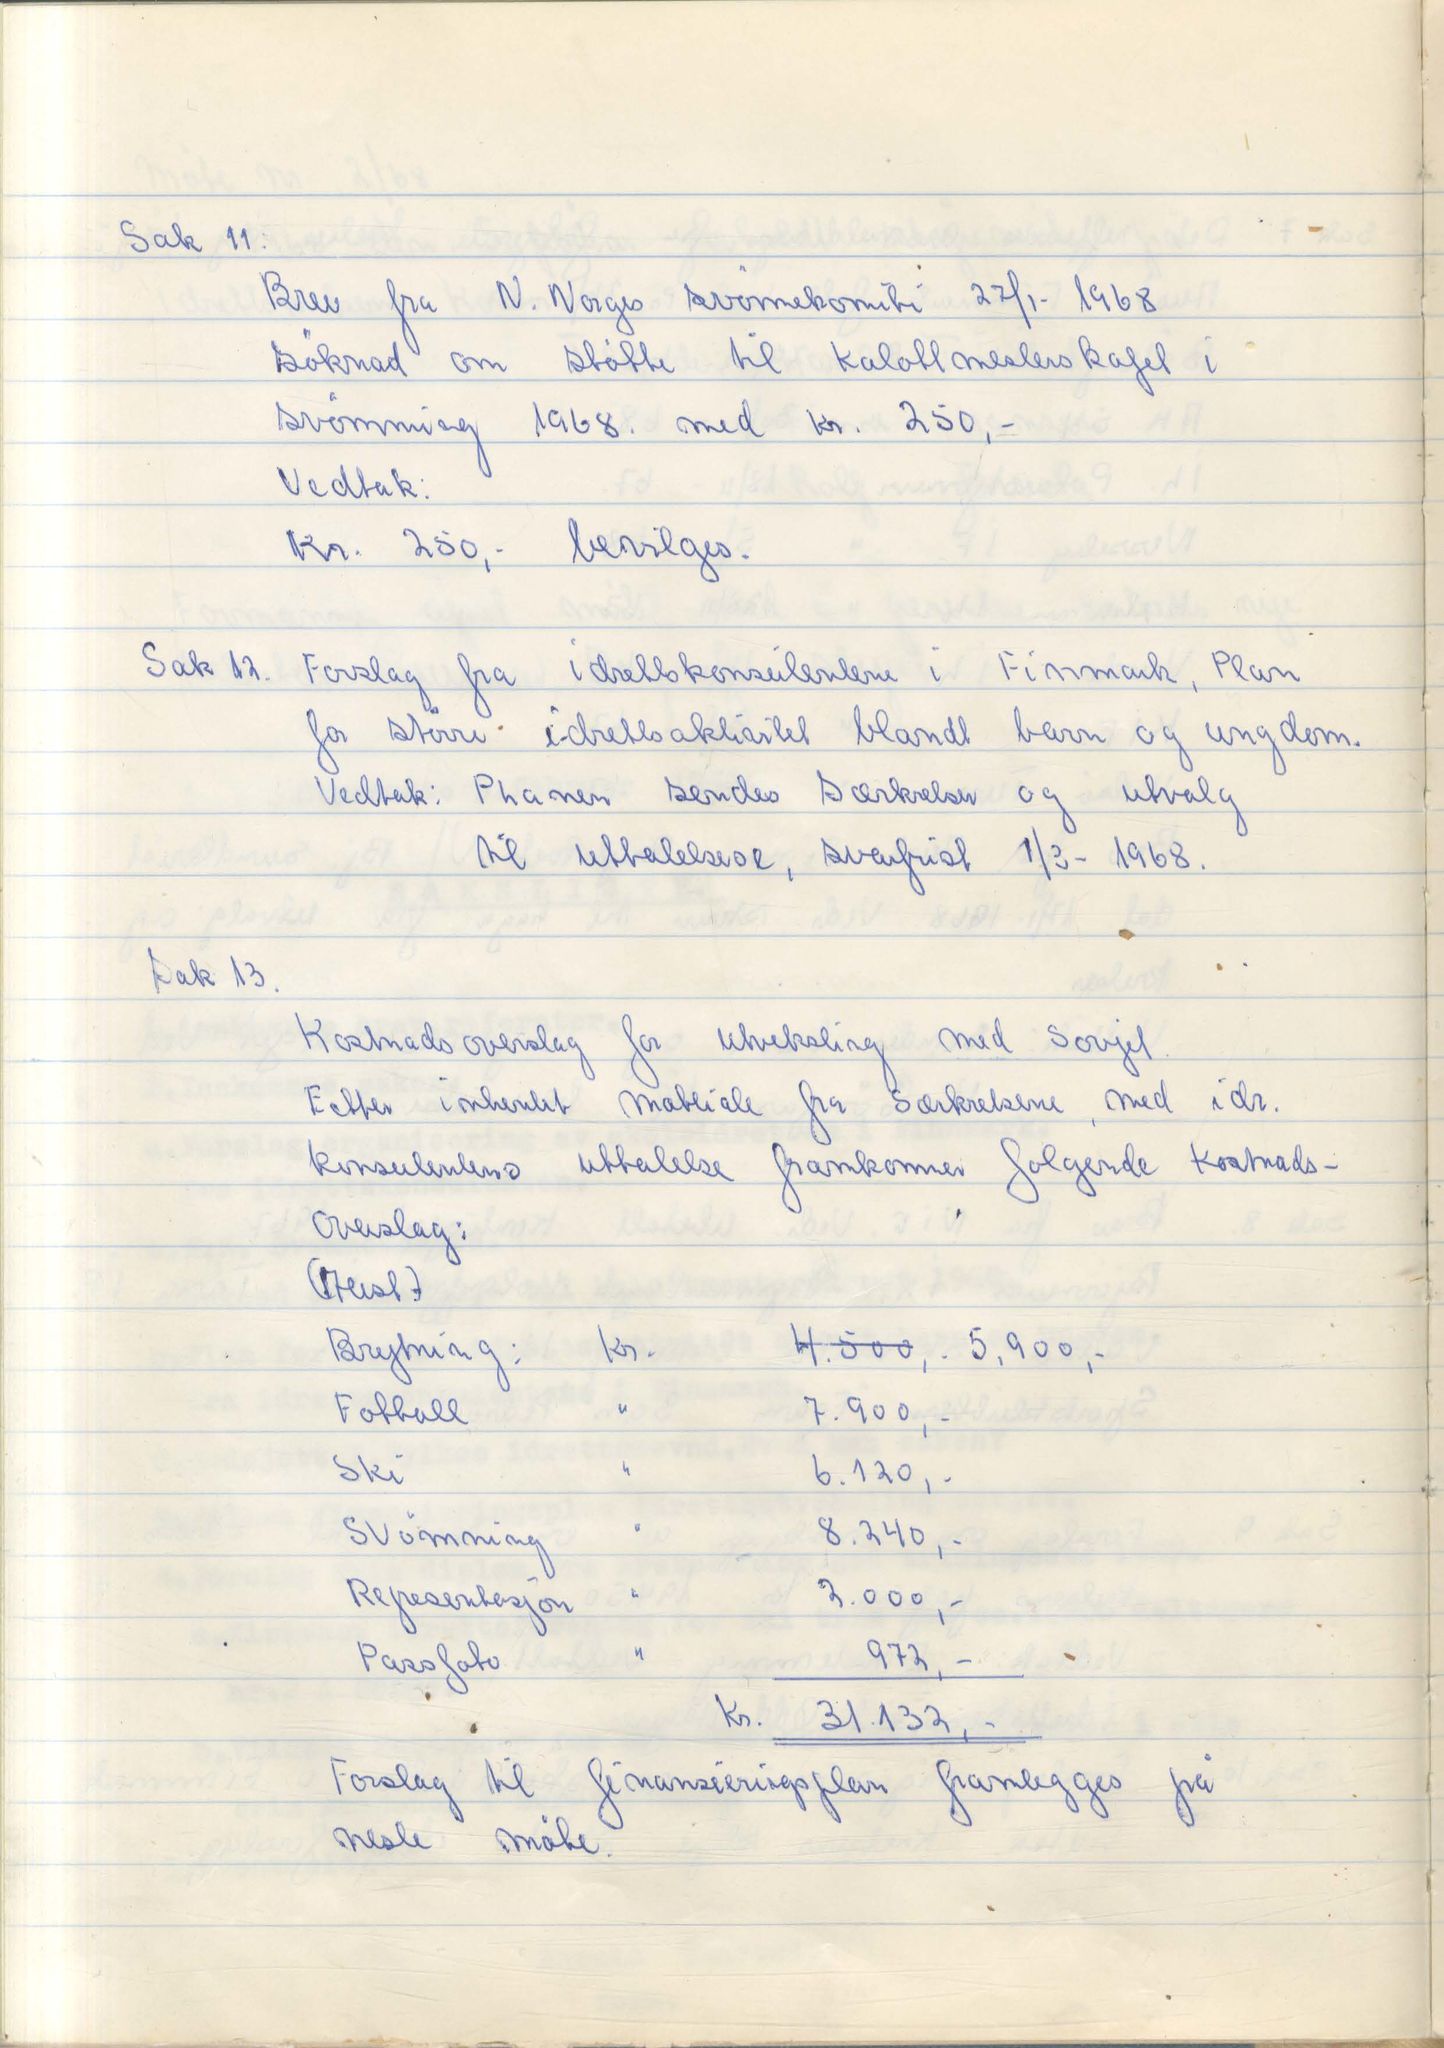 Sak 11:
Brev fra N. Norges svömekomite 27/1- 1968
söknad om stötte til Kalottmesterskapet i
svömming 1968. med kr. 250,-
Vedtak:
Kr. 250,- bevilges.
Sak 12. Forslag fra idrettskonsulentene i Finmark, Plan
for större idrettsaktivitet blandt barn og ungdom.
Vedtak: Planen sendes særkretser og utvalg
til uttalelse, svarfrist 1/3- 1968.
Sak 13.
Kostnadsoverslag for utveksling med Sovjet.
Etter inhentet matriale fra særkretsene, med idr.
konsulentens uttalelse framkommer følgende kostnads-
overslag:
Brytning: Kr. 4.500,- 5,900,-
Fotball " 7.900,-
Ski " 6.120,-
Svömning " 8.240,-
Representasjon " 2.000,-
Passfoto " 972,-
Kr. 31.132,-
Forslag til finansieringsplan framlegges på
neste möte.